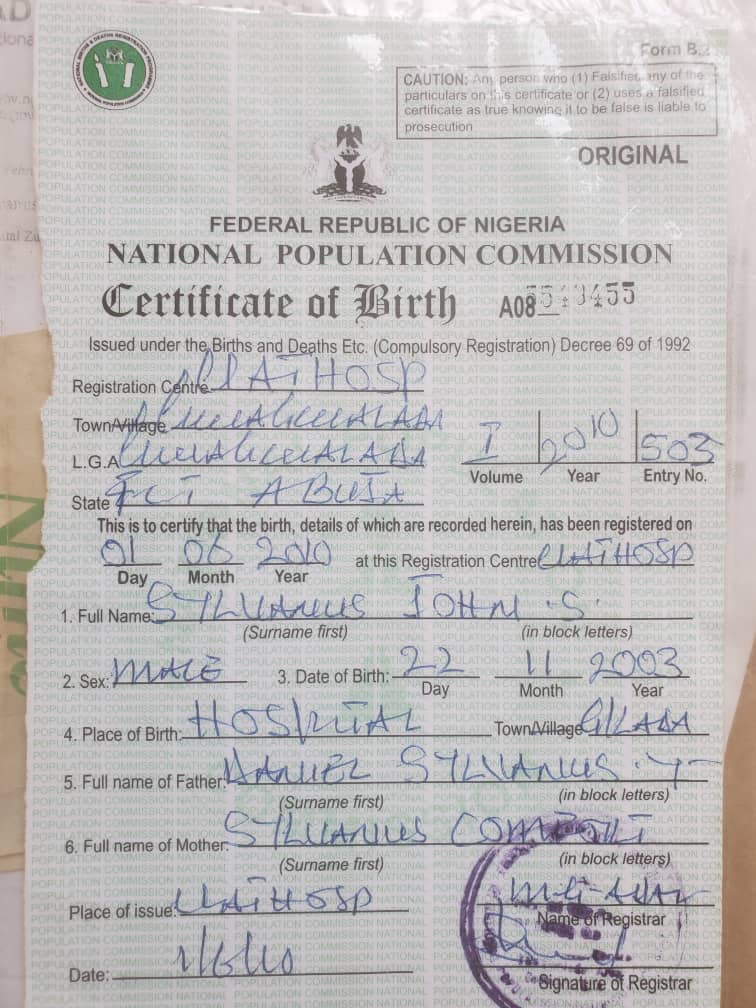 Form B.
CAUTION: Any person who (1) Falsifies any of the
particulars on this certificate or (2) uses a falsified
certificate as true knowing it to be false is liable to
prosecution
ORIGINAL
FEDERAL REPUBLIC OF NIGERIA
NATIONAL POPULATION COMMISSION
Certificate of Birth A08
Issued under the Births and Deaths Etc. (Compulsory Registration) Decree 69 of 1992
Registration Centre
Town/Village
L.G.A I 2010 503
Volume Year Entry No.
State FCT ABUJA
This is to certify that the birth, details of which are recorded herein, has been registered on
01 06 2010 at this Registration Centre
Day Month Year
1. Full Name: SYLVANUS JOHN .S.
(Surname first) (in block letters)
2. Sex: MALE 3. Date of Birth: 22 11 2003
Day Month Year
4. Place of Birth: HOSPITAL Town/Village
5. Full name of Father: DANIEL SYLVANUS .Y
(Surname first) (in block letters)
6. Full name of Mother: SYLVANUS COMFORT
(Surname first) (in block letters)
Place of issue:
Name of Registrar
Date:
Signature of Registrar